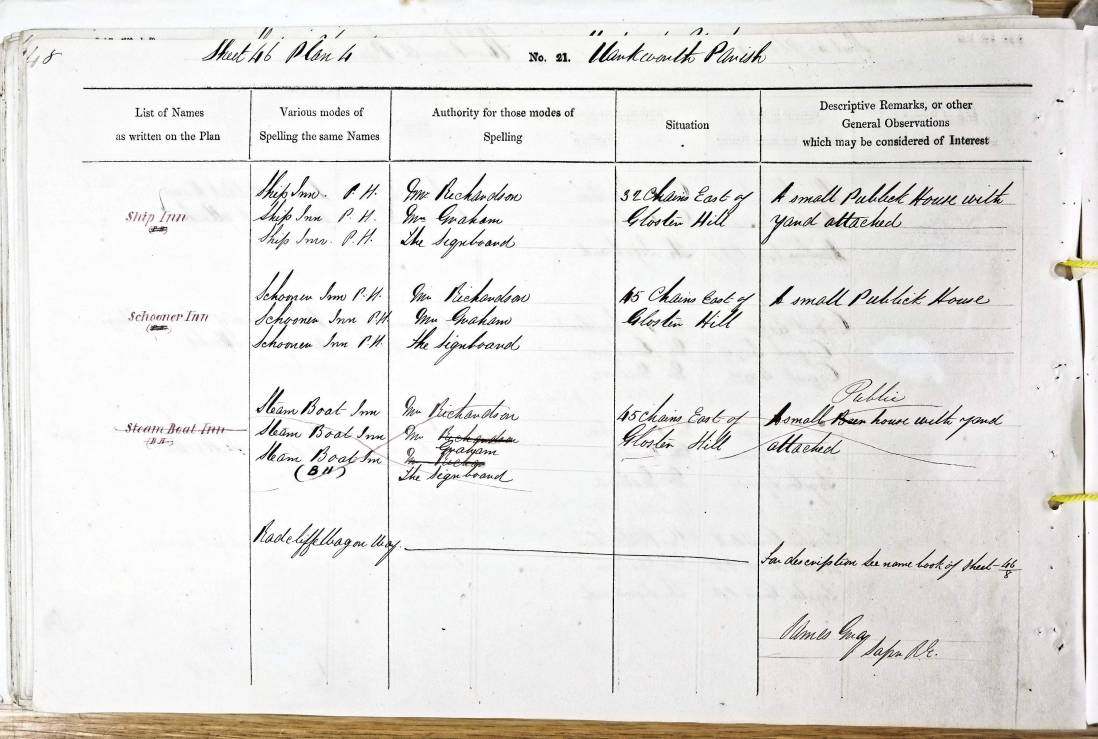 48
Sheet 46 Plan 4 No. 21. Warkworth Parish
List of Names
as written on the Plan
Various modes of
Spelling the same Names
Authority for those modes of
Spelling
Situation
Descriptive Remarks, or other
General Observations
which may be considered of Interest
Ship Inn
Ship Inn P.H.
Ship Inn P.H.
Ship Inn P.H.
Mr Richardson
Mr Graham
The Signboard
32 Chains East of
Gloster Hill
A small Publick House with
yard attached
Schooner Inn
Schooner Inn P.H.
Schooner Inn P.H.
Schooner Inn P.H.
Mr Richardson
Mr Graham
The Signboard
45 Chains East of
Gloster Hill
A small Publick House
Steam Boat Inn
(B.H.)
Steam Boat Inn
Steam Boat Inn
Steam Boat Inn
(B H)
Mr Richardson
Mr Richardson
Graham
The Signboard
45 Chains East of
Gloster Hill
Public
A small Beer house with yard
attached
Radcliffe Wagon Way.
For description see name book of Sheet 46/8
James Gray
Sapr R.E.